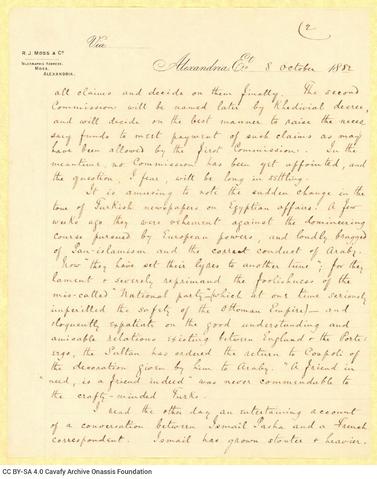 (2
Via
R. J. MOSS & Co
TELEGRAPHIC ADDRESS,
MOSS,
ALEXANDRIA.
Alexandria, Et. 8 October 1882
all claims and decide on them finally. The second
Commission will be named later by Khedivial decree,
and will decide on the best manner to raise the neces-
sary funds to meet payment of such claims as may
have been allowed by the first Commission. In the
meantime, no Commission has been yet appointed, and
the question, I fear, will be long in settling.
It is amusing to note the sudden change in the
tone of Turkish newspapers on Egyptian affairs. A few
weeks ago they were vehement against the domineering
course pursued by European powers, and loudly bragged
of Pan-islamism and the correct conduct of Araby.
Now "they have set their lyres to another tune"; for they
lament & severely reprimand the foolishness of the
mis-called "National party" (which at one time seriously
imperilled the safety of the Ottoman Empire) — and
eloquently expatiate on the good understanding and
amicable relations existing between England & the Porte.
ergo, the Sultan has ordered the return to Cospoli of
the decoration given by him to Araby. "A friend in
need, is a friend indeed" was never commendable to
the crafty-minded Turks.
I read the other day an entertaining account
of a conversation between Ismail Pasha and a French
correspondent. Ismail has grown stouter & heavier.
CC BY-SA 4.0 Cavafy Archive Onassis Foundation